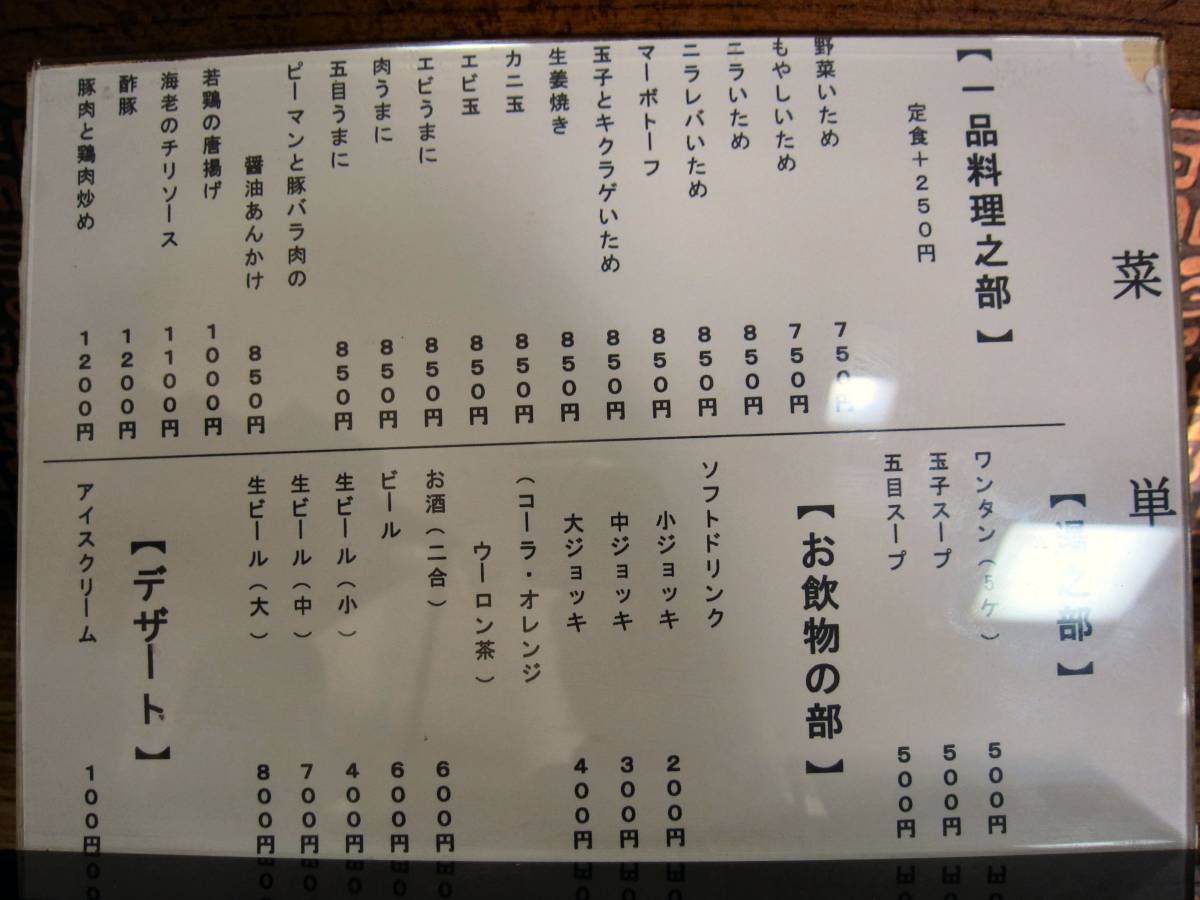 菜単
【一品料理之部】
定食＋２５０円
野菜いため　７５０円
もやしいため　７５０円
ニラいため　８５０円
ニラレバいため　８５０円
マーボトーフ　８５０円
玉子とキクラゲいため　８５０円
生姜焼き　８５０円
カニ玉　８５０円
エビ玉　８５０円
エビうまに　８５０円
肉うまに　８５０円
五目うまに　８５０円
ピーマンと豚バラ肉の
醤油あんかけ　８５０円
若鶏の唐揚げ　１０００円
海老のチリソース　１１００円
酢豚　１２００円
豚肉と鶏肉炒め　１２００円
【湯之部】
ワンタン（５ケ）　５００円
玉子スープ　５００円
五目スープ　５００円
【お飲物の部】
ソフトドリンク
小ジョッキ　２００円
中ジョッキ　３００円
大ジョッキ　４００円
（コーラ・オレンジ
ウーロン茶）
お酒（二合）　６００円
ビール　６００円
生ビール（小）　４００円
生ビール（中）　７００円
生ビール（大）　８００円
【デザート】
アイスクリーム　１００円